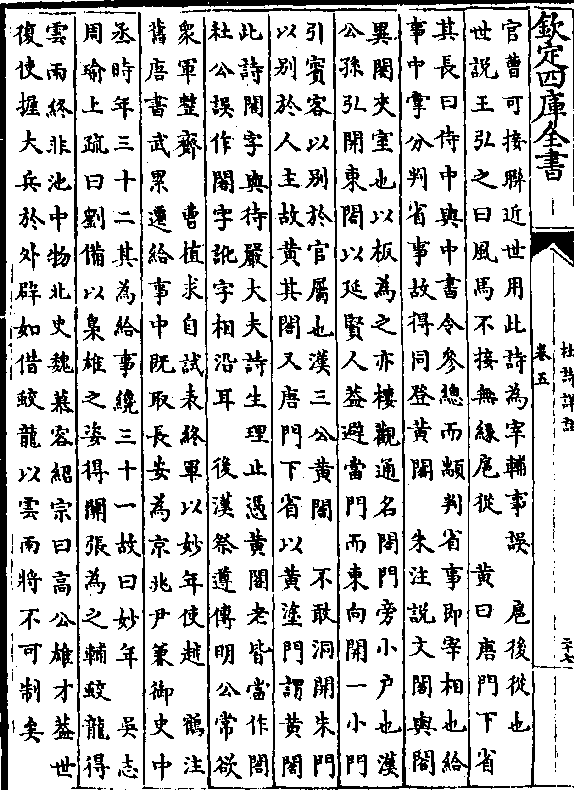 欽定四庫全書
杜詩詳註
卷五
二十七
官曹可接聯近世用此詩為宰輔事誤　扈後從也
世説王弘之曰風馬不接無緣扈從　黄曰唐門下省
其長曰侍中與中書令參總而顓判省事即宰相也給
事中掌分判省事故得同登黄閤　朱注説文閤與閣
異閤夾室也以板為之亦樓觀通名閤門旁小户也漢
公孫弘開東閤以延賢人葢避當門而東向開一小門
引賓客以别於官屬也漢三公黄閤　不敢洞開朱門
以别於人主故黄其閤又唐門下省以黄塗門謂黄閤
此詩閤字與待嚴大夫詩生理止憑黄閤老皆當作閤
杜公誤作閣字訛字相沿耳　後漢祭遵傳明公常欲
衆軍整齊　曹植求自試表終軍以妙年使越　鶴注
舊唐書武累遷給事中既取長安為京兆尹兼御史中
丞時年三十二其為給事纔三十一故曰妙年　吳志
周瑜上疏曰劉備以梟雄之姿得關張為之輔蛟龍得
雲雨終非池中物北史魏慕容紹宗曰高公雄才葢世
復使握大兵於外辟如借蛟龍以雲雨將不可制矣